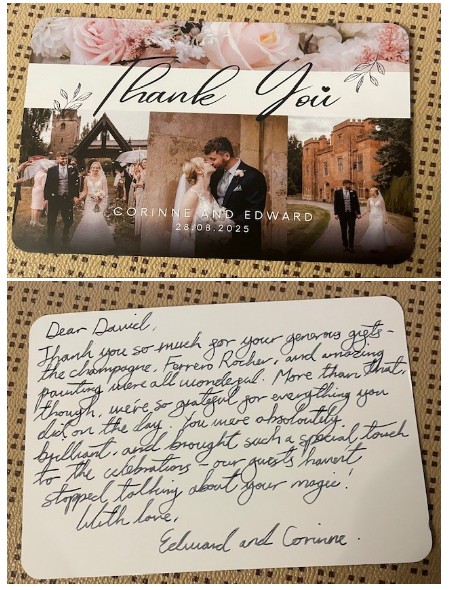 Thank You
CORINNE AND EDWARD
28.08.2025
Dear David,
Thank you so much for your generous gifts -
the champagne, Ferrero Rocher, and amazing
painting were all wonderful. More than that,
though, we're so grateful for everything you
did on the day. You were absolutely
brilliant, and brought such a special touch
to the celebrations - our guests haven't
stopped talking about your magic!
With love,
Edward and Corinne.